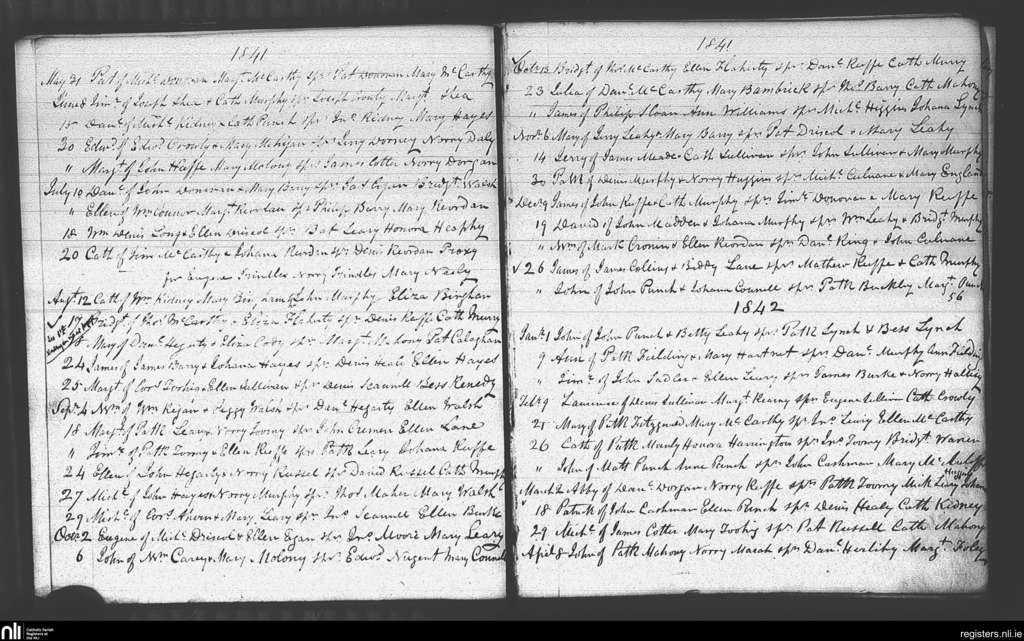 1841
May 31 Pat of Mich. Donovan Margt McCarthy sprs Pat Donovan Mary McCarthy
June 8 Jim. of Joseph Shea & Cath Murphy sprs Joseph Margt Shea
15 Danl of Mich. Kidney & Cath Punch sprs Jno Kidney Mary Hayes
20 Edwd of Edwd Crowly & Mary Mehigan sprs Jerry Norry Daly
" Margt of Keffe Mary Molony sprs James Cotter Norry Dorgan
July 10 Danl of John Donovan & Mary Barry sprs Jas Egan Bridgt Walsh
" Ellen of Wm Connor Margt Reordan sprs Philip Barry Mary Reordan
18 Wm Denis Long & Ellen Driscol sprs Bat Leary Honora Heaphy
20 Cath of Tim McCarthy & Johana sprs Denis Reordan Proxy
for Eugene Mary
Augt 12 Cath of Wm Kidney Mary sprs John Murphy Eliza Bingham
Bridgt of Thos McCarthy & Eliza Flaherty sprs Denis Keffe Cath Murry
Mary of Danl Hegarty & Eliza Cody sprs Margt Mahony Pat Calaghan
24 James of James Barry & Johana Hayes sprs Denis Healy Ellen Hayes
25 Margt of Cors Toohig & Ellen Sullivan sprs Denis Scannell Bess Kenedy
Sept 4 Wm of Wm Regan & Peggy Walsh sprs Danl Hegarty Ellen Walsh
18 Margt of Patk Leary & Norry Toomy sprs John Cremen Ellen Lane
" Jim. of Patk Toomy & Ellen Keffe sprs Patk Leary Johana Keffe
24 Ellen of John Hegarty & Norry Russel sprs David Russel Cath Murphy
27 Mich. of John Hayes & Norry Murphy sprs Thos Maher Mary Walsh
29 Mich. of Cors Ahern & Mary Leary sprs Jno Scannell Ellen Burke
Octr 2 Eugene of Mich. Driscol & Ellen Egan sprs Jno Moore Mary Leary
6 John of Wm Carey & Mary Molony sprs Edwd Nugent Mary Connell
1841
Octr 13 Bridgt of Thos McCarthy Ellen Flaherty sprs Danl Keffe Cath Murry
23 of Danl McCarthy Mary Bambrick sprs Thos Barry Cath Mahony
" James of Philip Sloan Ann Williams sprs Mich. Higgins Johana Lynch
Novr 6 Mary of Jerry Leahy & Mary Barry sprs Pat Driscol & Mary Leahy
14 Jerry of James Meade & Cath Sullivan sprs John Sullivan & Mary Murphy
30 Patk of Denis Murphy & Norry Huggins sprs Mich. Culnane & Mary England
Decr 9 James of John Keffe & Cath Murphy sprs Jim. Donovan & Mary Keffe
19 David of John Madden & Johana Murphy sprs Wm Leahy & Bridgt Murphy
" Wm of Mark Cronen & Ellen Riordan sprs Danl King & John Culnane
26 James of James Collins & Biddy Lane sprs Mathew Keffe & Cath Murphy
" John of John Punch & Johana Connell sprs Patk Buckley Margt Punch
56
1842
Jany 1 John of John Punch & Betty Leahy sprs Patk Lynch & Bess Lynch
9 Ann of Patk Fielding & Mary Hartnet sprs Danl Murphy Ann Fielding
" Jim. of John Sadler & Ellen Leary sprs James Burke & Norry
Feby 9 Laurence of Denis Sullivan Margt Kearny sprs Eugene Sullivan Cath Crowly
21 Mary of Patk Fitzgerald Mary McCarthy sprs Jno Lewis Ellen McCarthy
26 Cath of Patk Manly Honora Harrington sprs Jno Toomy Bridgt Warren
" John of Matt Punch Anne Punch sprs John Cashman Mary McAuliffe
March 2 Abby of Danl Dorgan Norry Keffe sprs Patk Toomey Mich Leary
18 Patrick of John Cashman Ellen Punch sprs Denis Healy Cath Kidney
29 Mich. of James Cotter Mary Toohig sprs Pat Russell Cath Mahony
April 8 John of Patk Mahony Norry Marah sprs Danl Herlihy Margt Foley
nli
Catholic Parish
Registers at
the NLI
registers.nli.ie